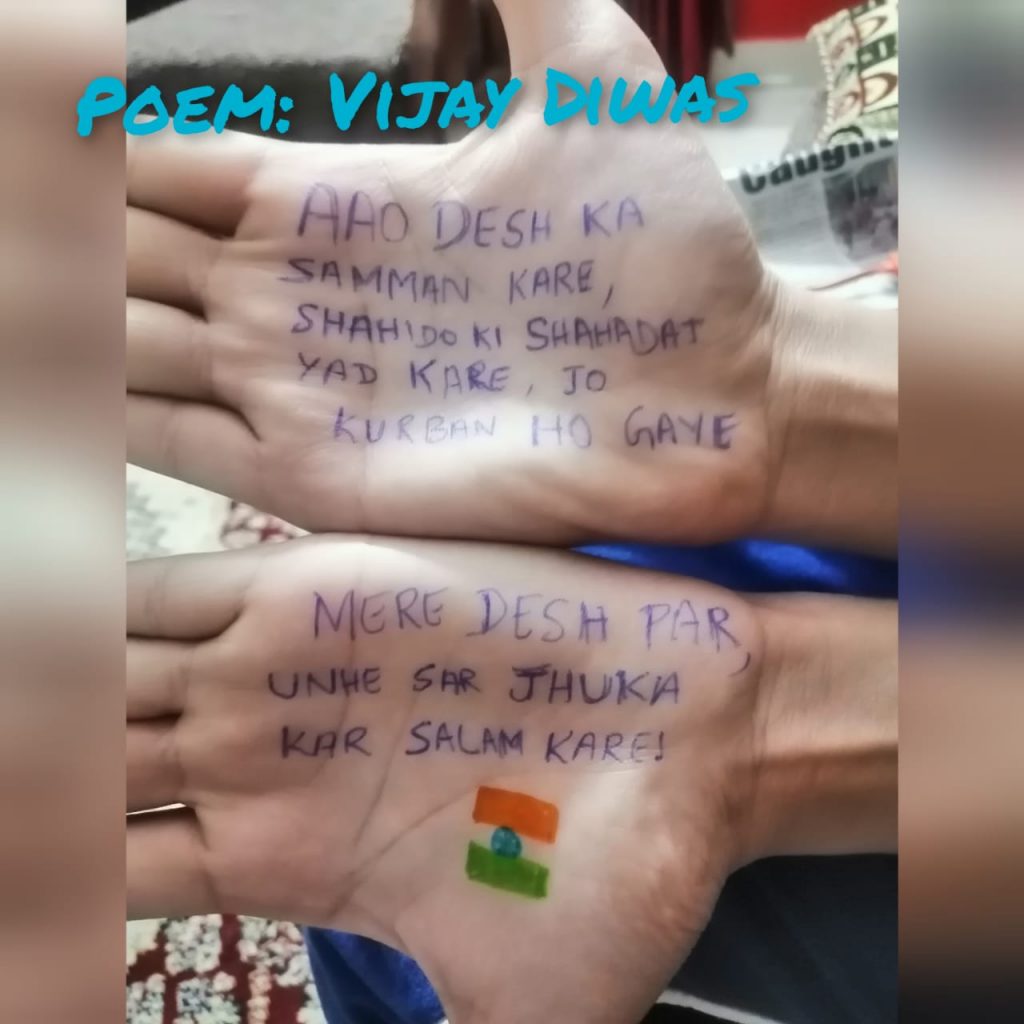 Poem: Vijay Diwas
Caught
AAO DESH KA
SAMMAN KARE,
SHAHIDO KI SHAHADAT
YAD KARE, JO
KURBAN HO GAYE
MERE DESH PAR,
UNHE SAR JHUKA
KAR SALAM KARE!